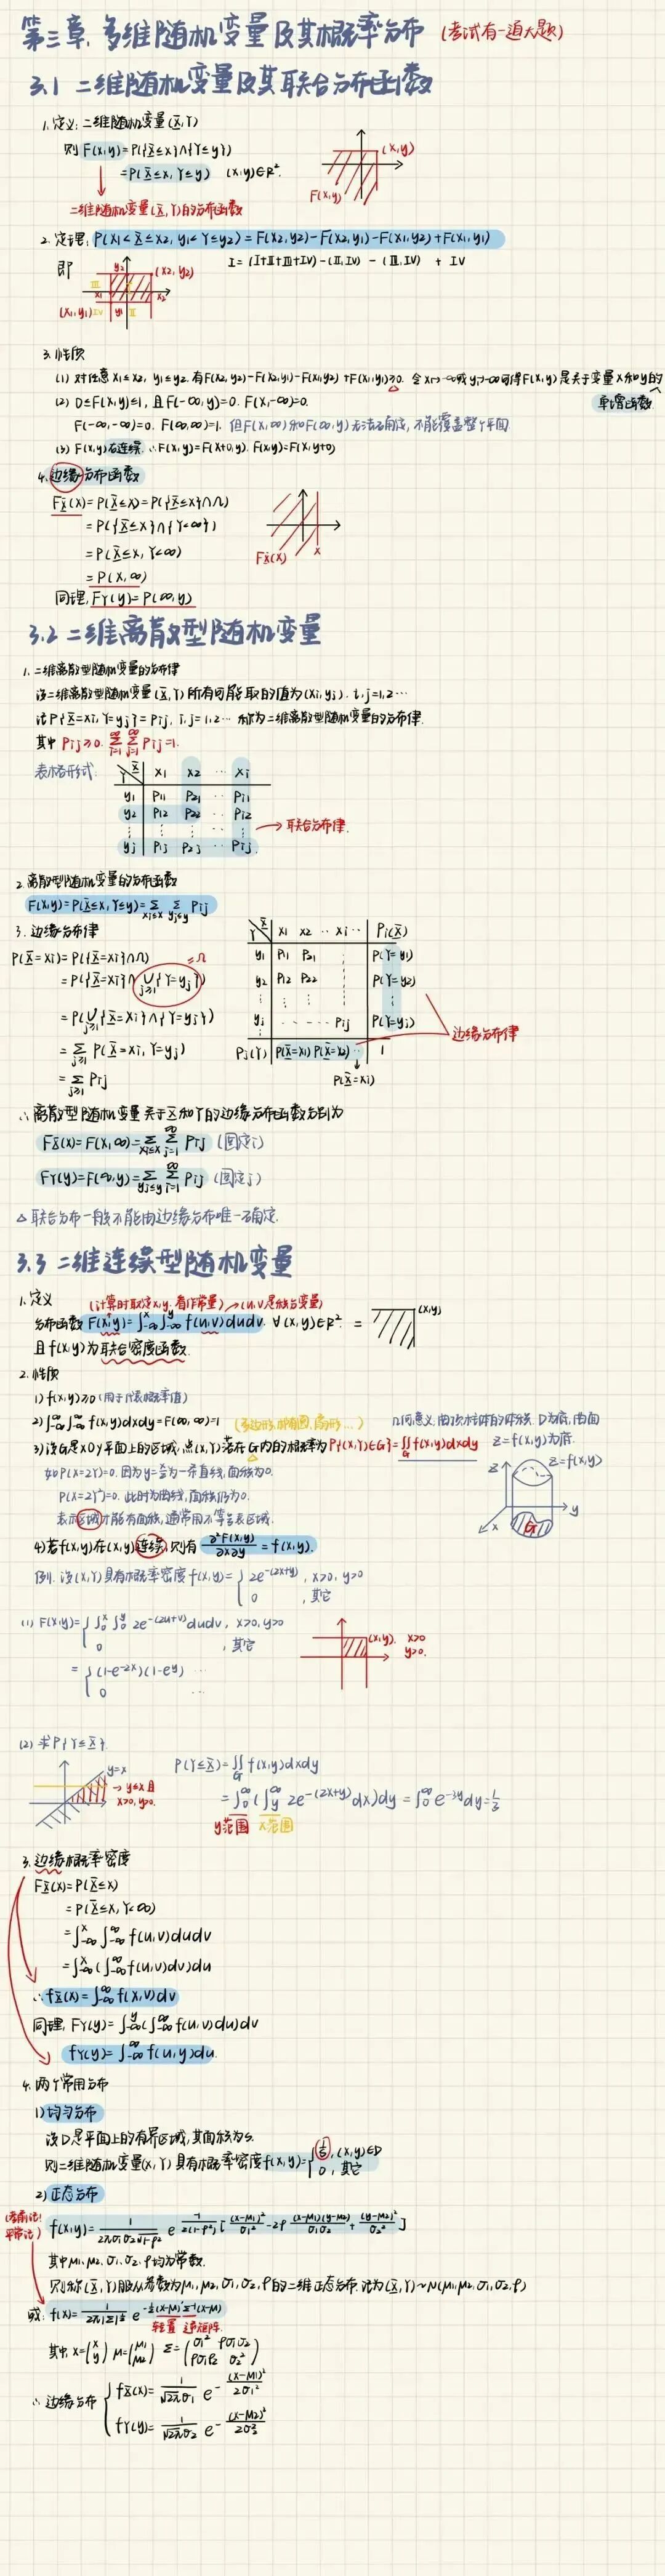 第三章. 多维随机变量及其概率分布 (考试有一道大题)
3.1 二维随机变量及其联合分布函数
1. 定义: 二维随机变量(X,Y)
则 F(x,y)=P({X≤x}∩{Y≤y})
=P(X≤x, Y≤y) (x,y)∈R².
二维随机变量(X,Y)的分布函数
(x,y)
F(x,y)
2. 定理: P(x1<X≤x2, y1<Y≤y2)=F(x2,y2)-F(x2,y1)-F(x1,y2)+F(x1,y1)
即 I=(I+II+III+IV)-(II,IV) - (III,IV) + IV
y2 (x2,y2)
III I
x1 x2
(x1,y1) IV y1 II
3. 性质
(1) 对任意 x1≤x2, y1≤y2. 有F(x2,y2)-F(x2,y1)-F(x1,y2)+F(x1,y1)≥0. 令x1→-∞或y1→-∞可得F(x,y)是关于变量x和y的
单增函数.
(2) 0≤F(x,y)≤1, 且F(-∞,y)=0. F(x,-∞)=0.
F(-∞,-∞)=0. F(∞,∞)=1. 但F(x,∞)和F(∞,y)无法确定, 不能覆盖整个平面
(3) F(x,y)右连续. ∴F(x,y)=F(x+0,y). F(x,y)=F(x,y+0)
4. 边缘分布函数
FX(x)=P(X≤x)=P({X≤x}∩Ω)
=P({X≤x}∩{Y<∞})
=P(X≤x, Y<∞)
=P(x,∞)
FX(x) x
同理, FY(y)=P(∞,y)
3.2 二维离散型随机变量
1. 二维离散型随机变量的分布律
设二维离散型随机变量(X,Y)所有可能取的值为(xi,yj). i,j=1,2…
记P{X=xi,Y=yj}=Pij, i,j=1,2… 称为二维离散型随机变量的分布律.
其中 Pij≥0. ∑(i=1→∞)∑(j=1→∞)Pij=1.
表格形式:
Y X x1 x2 … xi
y1 P11 P21 … Pi1
y2 P12 P22 … Pi2
⋮ ⋮ ⋮ ⋮
yj P1j P2j … Pij
→ 联合分布律.
2. 离散型随机变量的分布函数
F(x,y)=P(X≤x,Y≤y)=∑(xi≤x)∑(yj≤y)Pij
3. 边缘分布律
P(X=xi)=P({X=xi}∩Ω) =Ω
=P({X=xi}∩∪(j≥1){Y=yj})
=P(∪(j≥1){X=xi}∩{Y=yj})
=∑(j≥1)P(X=xi,Y=yj)
=∑(j≥1)Pij
Y X x1 x2 … xi … Pi(X)
y1 P11 P21 ⋮ P(Y=y1)
y2 P12 P22 ⋮ P(Y=y2)
⋮ ⋮ ⋮ ⋮
yj … Pij P(Y=yj)
Pj(Y) P(X=x1) P(X=x2) … 1
P(X=xi)
边缘分布律
∴离散型随机变量关于X和Y的边缘分布函数分别为
FX(x)=F(x,∞)=∑(xi≤x)∑(j=1→∞)Pij (固定i)
FY(y)=F(∞,y)=∑(yj≤y)∑(i=1→∞)Pij (固定j)
△联合分布一般不能由边缘分布唯一确定.
3.3 二维连续型随机变量
1. 定义 (计算时取定x,y. 看作常量)→(u,v是积分变量)
分布函数F(x,y)=∫(-∞→x)∫(-∞→y)f(u,v)dudv. ∀(x,y)∈R². = (x,y)
且f(x,y)为联合密度函数.
2. 性质
1) f(x,y)≥0 (用于代表概率值)
2) ∫(-∞→∞)∫(-∞→∞)f(x,y)dxdy=F(∞,∞)=1 (多边形,椭圆,扇形…) 几何意义. 曲顶柱体的体积. D为底, 曲面
3) 设G是xOy平面上的区域, 点(X,Y)落在G内的概率为P{(X,Y)∈G}=∬(G)f(x,y)dxdy z=f(x,y)为顶.
如P(X=2Y)=0. 因为y=x/2为一条直线, 面积为0.
P(X=2Y²)=0. 此时为曲线, 面积仍为0.
表示区域才能有面积, 通常用不等式表区域.
z z=f(x,y)
y
x G
4) 若f(x,y)在(x,y)连续, 则有 ∂²F(x,y)/∂x∂y=f(x,y).
例. 设(X,Y)具有概率密度f(x,y)={2e^-(2x+y), x>0, y>0
0 , 其它
(1) F(x,y)={∫(0→x)∫(0→y)2e^-(2u+v)dudv, x>0, y>0
0 , 其它
={(1-e^-2x)(1-e^y) …
0 …
(x,y). x>0
y>0.
(2) 求P{Y≤X}.
y=x
→ y≤x且
x>0,y>0.
P(Y≤X)=∬(G)f(x,y)dxdy
=∫(0→∞)(∫(y→∞)2e^-(2x+y)dx)dy=∫(0→∞)e^-3y dy=1/3
y范围 x范围
3. 边缘概率密度
FX(x)=P(X≤x)
=P(X≤x,Y<∞)
=∫(-∞→x)∫(-∞→∞)f(u,v)dudv
=∫(-∞→x)(∫(-∞→∞)f(u,v)dv)du
∴fX(x)=∫(-∞→∞)f(x,v)dv
同理, FY(y)=∫(-∞→y)(∫(-∞→∞)f(u,v)du)dv
fY(y)=∫(-∞→∞)f(u,y)du.
4. 两个常用分布
1) 均匀分布
设D是平面上的有界区域, 其面积为S.
则二维随机变量(X,Y)具有概率密度f(x,y)={1/S, (x,y)∈D
0, 其它
2) 正态分布
(考前记! 平常记)
f(x,y)=1/(2πσ1σ2√(1-ρ²)) e^ -1/(2(1-ρ²))[(x-μ1)²/σ1² -2ρ (x-μ1)(y-μ2)/σ1σ2 + (y-μ2)²/σ2²]
其中μ1,μ2,σ1,σ2,ρ均为常数.
则称(X,Y)服从参数为μ1,μ2,σ1,σ2,ρ的二维正态分布, 记为(X,Y)~N(μ1,μ2,σ1,σ2,ρ)
或: f(x)=1/(2π|Σ|^½) e^-½(x-μ)'Σ⁻¹(x-μ)
转置 逆矩阵.
其中, x=(x y) μ=(μ1 μ2) Σ=(σ1² ρσ1σ2
ρσ1σ2 σ2²)
∴边缘分布{fX(x)=1/(√2π σ1) e^-(x-μ1)²/2σ1²
fY(y)=1/(√2π σ2) e^-(x-μ2)²/2σ2²